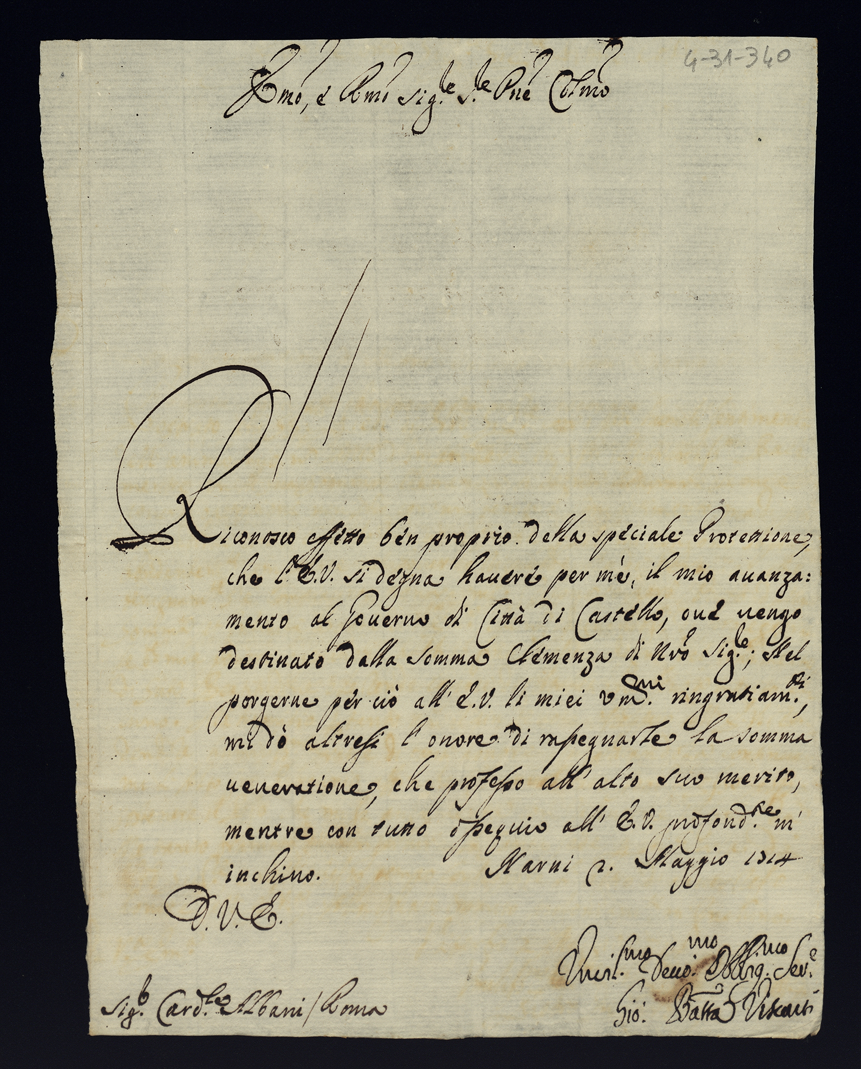 4-31-340
Emo, e Rmo Sig.re S.re Pne Colmo
Riconosco effetto ben proprio della speciale Protettione,
che l'E.V. si degna havere per mè, il mio auanza:
mento al Gouerno di Città di Castello, oue uengo
destinato dalla somma Clemenza di Nrõ Sig.re; Nel
porgerne per ciò all' E.V. li miei vm.mi ringratiam.ti,
mi dò altresi l'onore di rassegnarle la somma
ueneratione, che professo all' alto suo merito,
mentre con tutto ossequio all' E.V. profond.te m'
inchino. Narni 2. Maggio 1714
D.V.E.
Vmil.mo Deuo.mo Obblig.mo Ser.e
Gio: Batta Visconti
Sig.r Card.le Albani / Roma